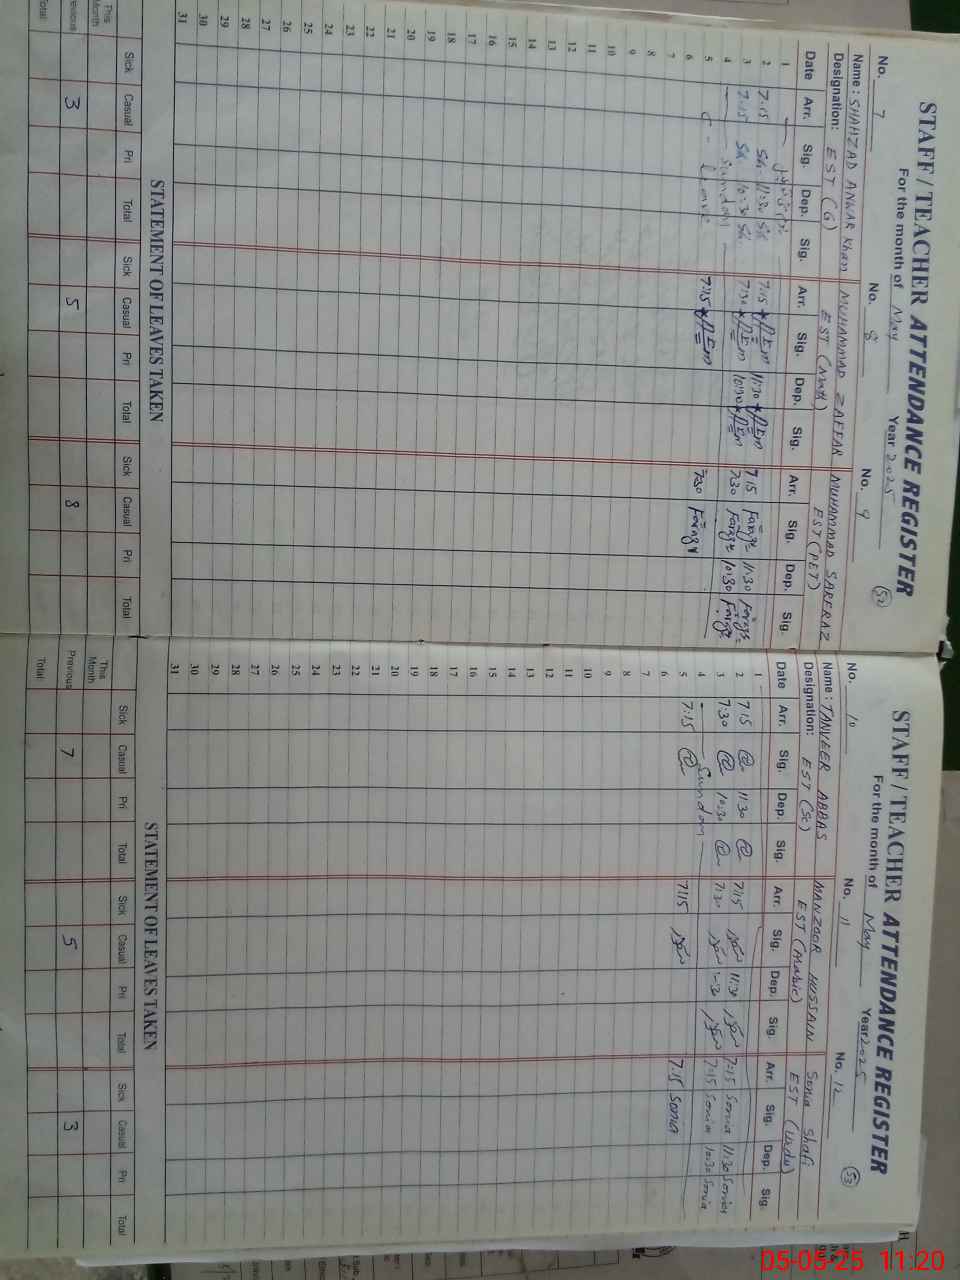 STAFF / TEACHER ATTENDANCE REGISTER
For the month of May Year 2025
52
No. 7 No. 8 No. 9
Name : SHAHZAD ANKAR Khan MUHAMMAD ZAFFAR MUHAMMAD SARFRAZ
Designation: EST (G) EST (Math) EST (PET)
Date Arr. Sig. Dep. Sig. Arr. Sig. Dep. Sig. Arr. Sig. Dep. Sig.
1
2 7:15 Sh 11:30 Sh 7:15 11:30 7:15 11:30
3 7:15 Sh 10:30 Sh 7:30 10:30 7:30 10:30
4 Sunday
5 C - Leave 7:15 7:30
6
7
8
9
10
11
12
13
14
15
16
17
18
19
20
21
22
23
24
25
26
27
28
29
30
31
STATEMENT OF LEAVES TAKEN
Sick Casual Pri Total Sick Casual Pri Total Sick Casual Pri Total
This Month
Previous 3 5 8
Total
STAFF / TEACHER ATTENDANCE REGISTER
For the month of May Year 2025
53
No. 10 No. 11 No. 12
Name : TANVEER ABBAS MANZOOR HUSSAIN Sonia Shafi
Designation: EST (Sc) EST (Arabic) EST (Urdu)
Date Arr. Sig. Dep. Sig. Arr. Sig. Dep. Sig. Arr. Sig. Dep. Sig.
1
2 7:15 11:30 7:15 11:30 7:15 Sonia 11:30 Sonia
3 7:30 10:30 7:30 7:15 Sonia 10:30 Sonia
4 Sunday
5 7:15 7:15 7:15 Sonia
6
7
8
9
10
11
12
13
14
15
16
17
18
19
20
21
22
23
24
25
26
27
28
29
30
31
STATEMENT OF LEAVES TAKEN
Sick Casual Pri Total Sick Casual Pri Total Sick Casual Pri Total
This Month
Previous 7 5 3
Total
D5-05-25 11:20